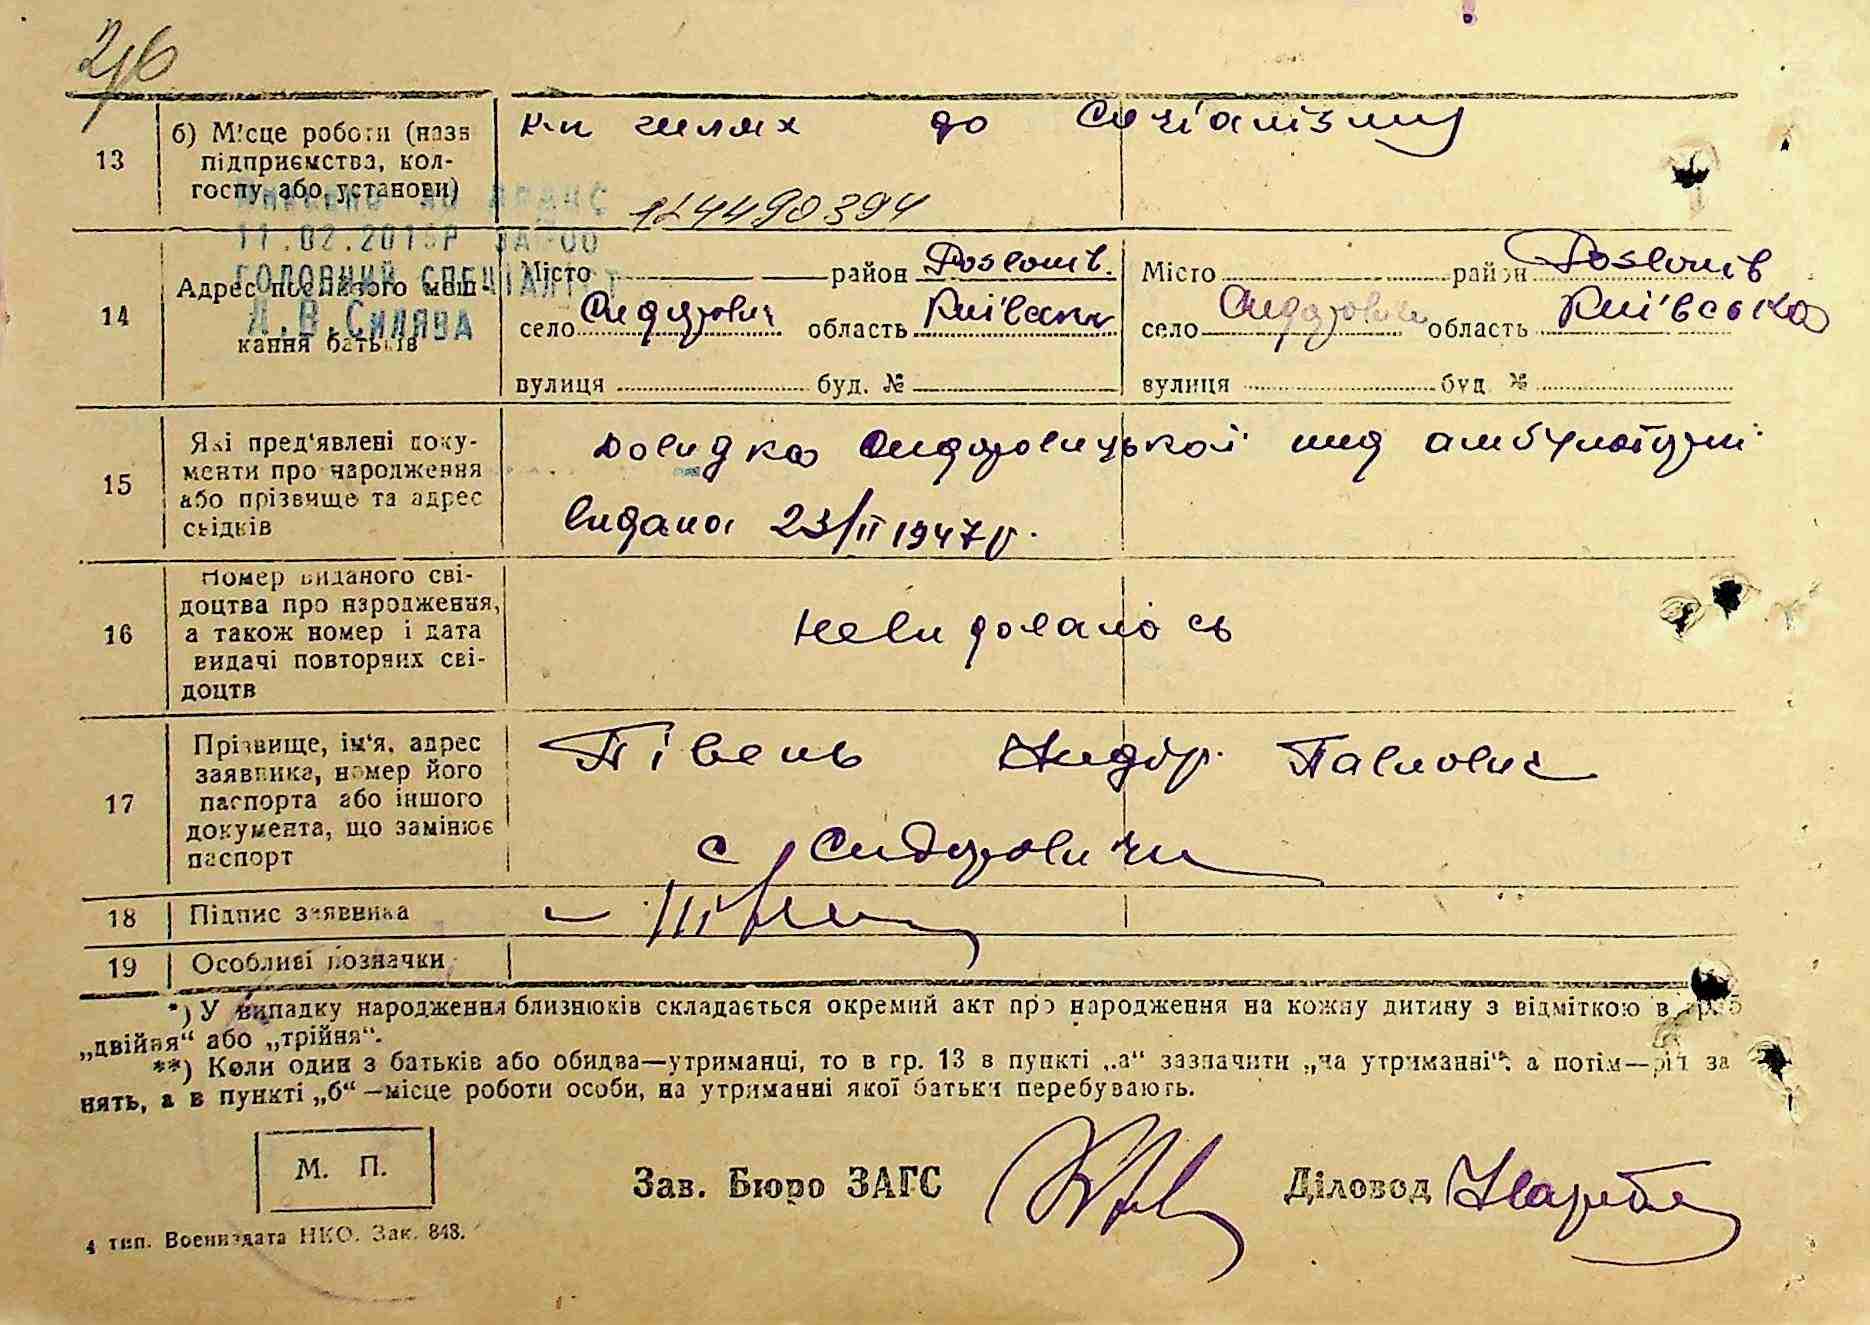 26
13 б) Місце роботи (назв підприємства, колгоспу або установи) к-п шлях до Соціалізму
124490394
11.02.2015р
ГОЛОВНИЙ СПЕЦІАЛІСТ
14 Адрес постійного мешкання батьків
Місто район село Сидорович область Київська
вулиця буд. №
Місто район село Сидоровичи область Київська
вулиця буд №
15 Які пред'явлені документи про народження або прізвище та адрес свідків
Довидка Сидоровицької мед амбулаторії
видана 23/II 1947 р.
16 Номер виданого свідоцтва про народження, а також номер і дата видачі повторних свідоцтв
Невидовалось
17 Прізвище, ім'я, адрес заявника, номер його паспорта або іншого документа, що замінює паспорт
Півень Павлович
с Сидоровичи
18 Підпис заявника
19 Особливі позначки
*) У випадку народження близнюків складається окремий акт про народження на кожну дитину з відміткою в
„двійня“ або „трійня“.
**) Коли один з батьків або обидва—утриманці, то в гр. 13 в пункті „а“ зазначити „на утриманні“, а потім—рід за
нять, а в пункті „б“—місце роботи особи, на утриманні якої батьки перебувають.
М. П.
Зав. Бюро ЗАГС
Діловод
4 тип. Воениздата НКО. Зак. 848.